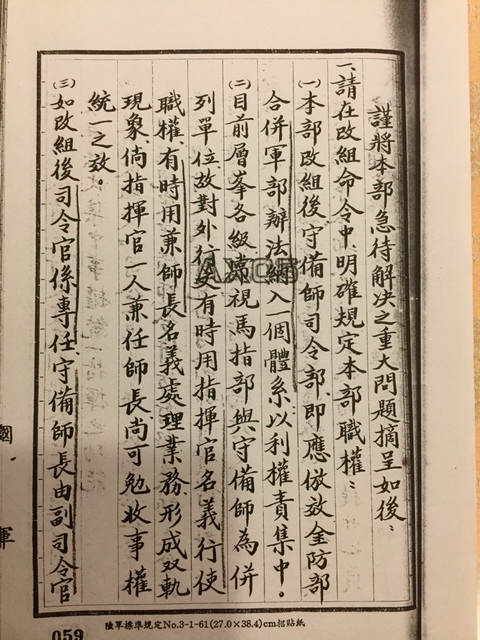 謹將本部急待解決之重大問題摘呈如後：
一、請在改組命令中，明確規定本部職權：
㈠本部改組後，守備師司令部，即應倣效金防部
合併軍部辦法，編入一個體系以利權責集中。
㈡目前層峯各級常視馬指部與守備師為併
列單位，故對外行文有時用指揮官名義行使
職權，有時用兼師長名義處理業務，形成双軌
現象，倘指揮官一人兼任師長，尚可勉收事權
統一之效。
㈢如改組後司令官係專任，守備師長由副司令官
陸軍標準規定No.3-1-61(27.0×38.4)cm招貼紙
059
軍